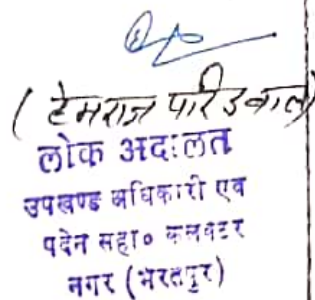 ( हेमराज परिडवाल)
लोक अदालत
उपखण्ड अधिकारी एव
पदेन सहा० कलक्टर
नगर (भरतपुर)